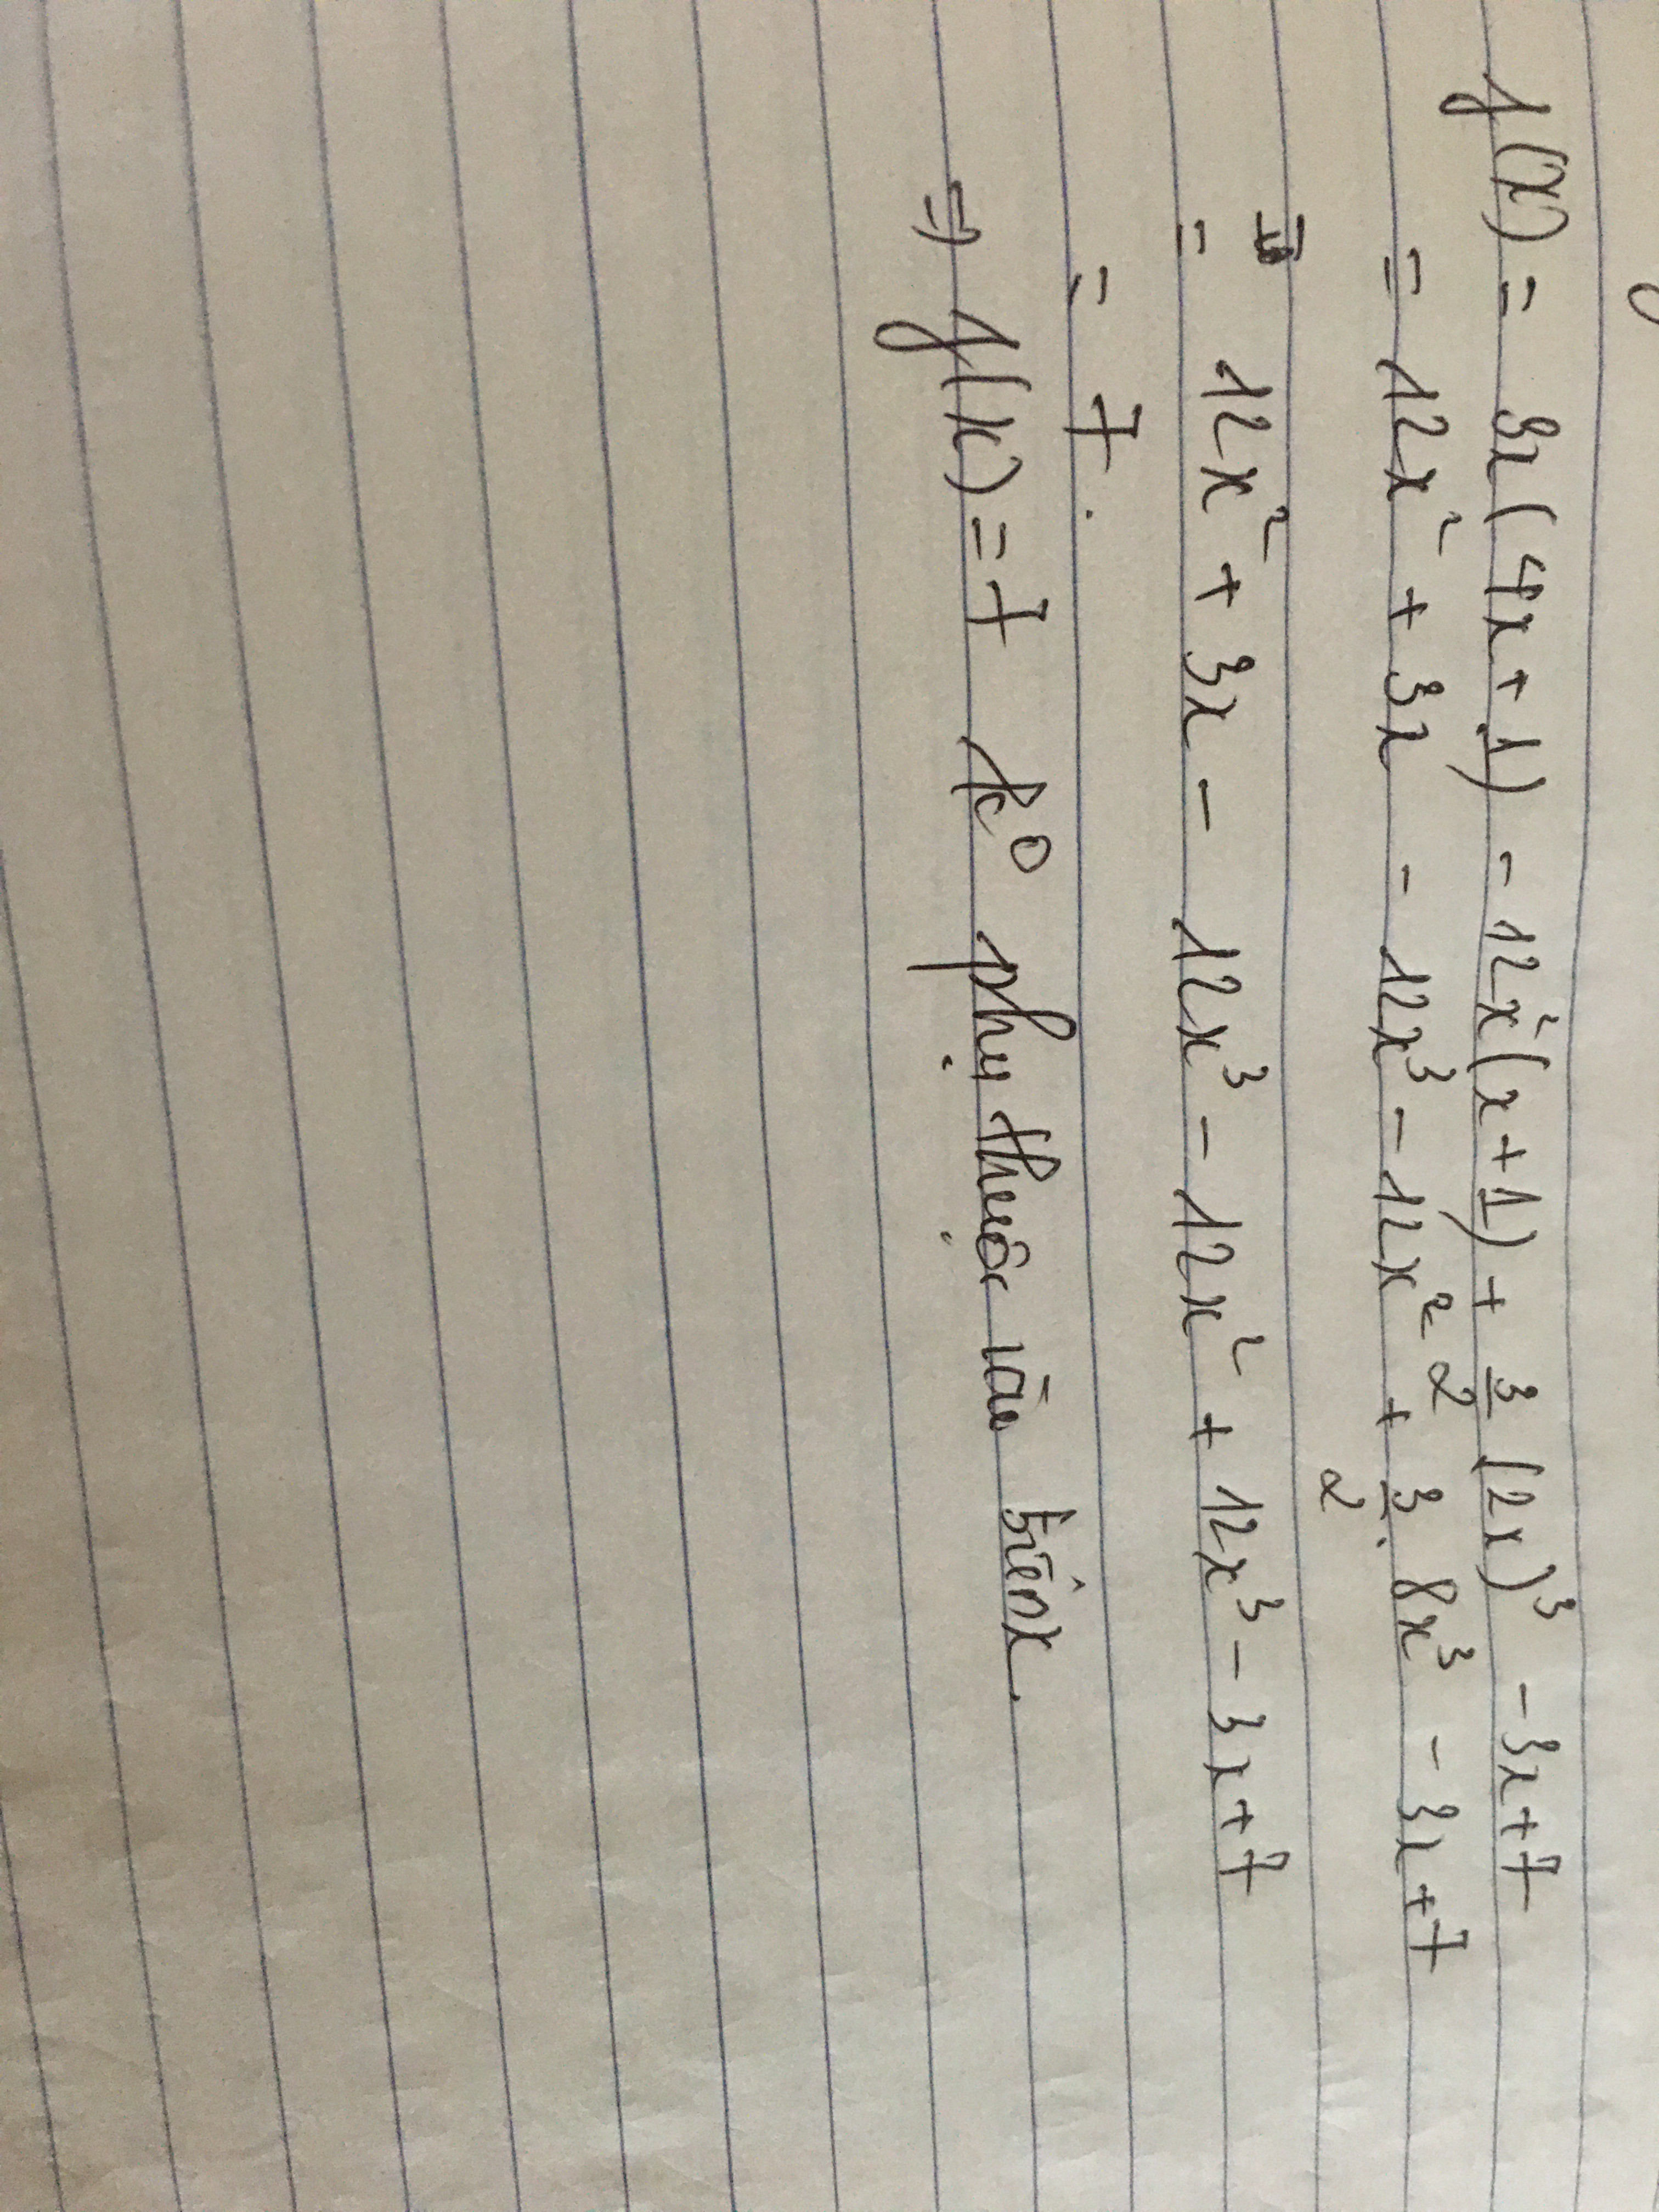 f(x) = 3x(4x+1) - 12x²(x+1) + 3/2 (2x)³ - 3x+7
= 12x² + 3x - 12x³ - 12x² + 3/2 . 8x³ - 3x+7
= 12x² + 3x - 12x³ - 12x² + 12x³ - 3x+7
= 7.
⇒ f(x) = 7 k⁰ phụ thuộc vào biến x.